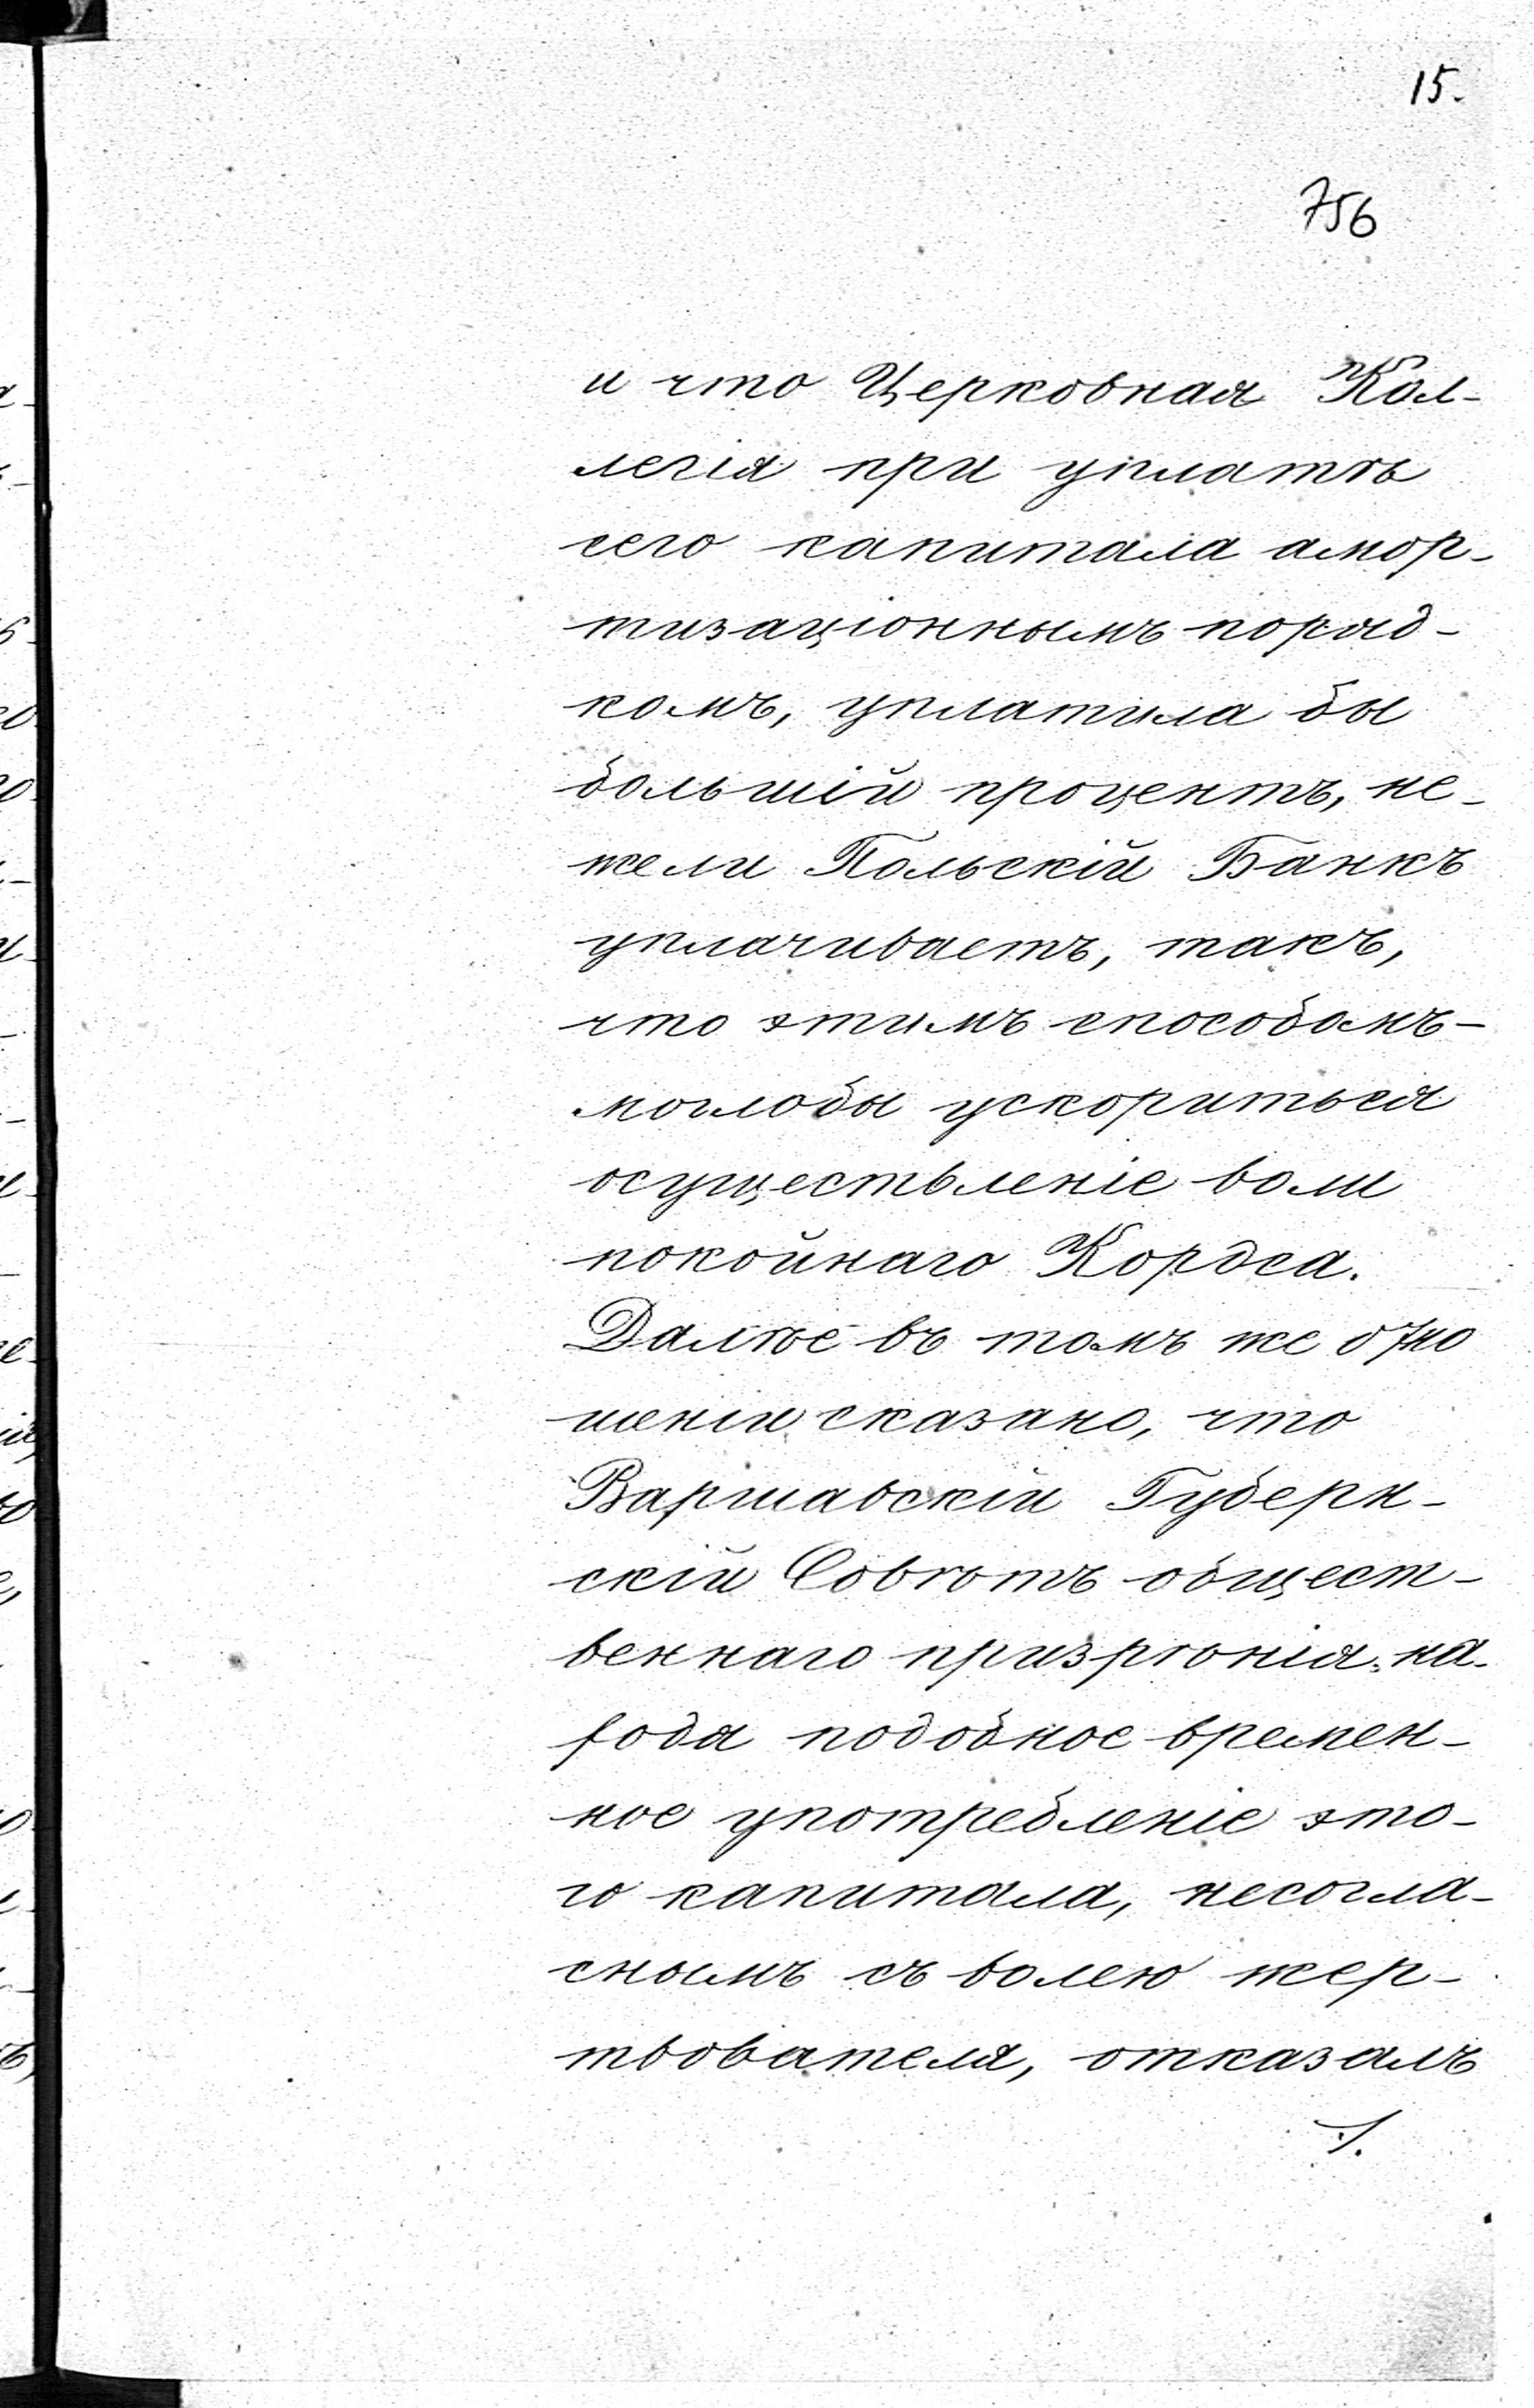 15.
756
и что Церковная Кол-
легія при уплатѣ
сего капитала амор-
тизаціоннымъ поряд-
комъ, уплатила бы
большій процентъ, не-
жели Польскій Банкъ
уплачиваетъ, такъ,
что этимъ способомъ-
моглобы ускориться
осуществленіе воли
покойнаго Кордса.
Далѣе въ томъ же отно
шеніи сказано, что
Варшавскій Губерн-
скій Совѣтъ общест-
веннаго призрѣнія, на-
ходя подобное времен-
ное употребленіе это-
го капитала, несогла-
снымъ съ волею жер-
твователя, отказалъ